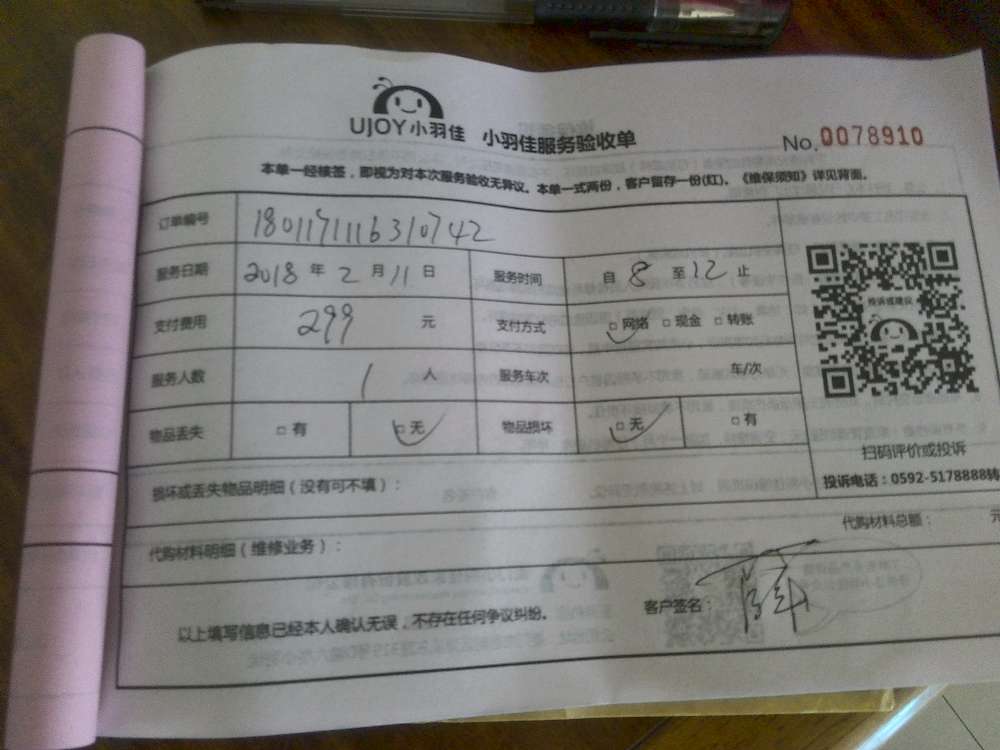 UJOY小羽佳 小羽佳服务验收单 No.0078910
本单一经核签，即视为对本次服务验收无异议。本单一式两份，客户留存一份(红)。《维保须知》详见背面。
订单编号 1801171116310742
服务日期 2018 年 2 月 11 日 服务时间 自 8 至 12 止
支付费用 299 元 支付方式 □ 网络 □ 现金 □ 转账
服务人数 1 人 服务车次 车/次
物品丢失 □ 有 □ 无 物品损坏 □ 无 □ 有
投诉或建议
扫码评价或投诉
投诉电话：0592-5178888转
损坏或丢失物品明细（没有可不填）：
代购材料明细（维修业务）： 代购材料总额： 元
以上填写信息已经本人确认无误，不存在任何争议纠纷。 客户签名：